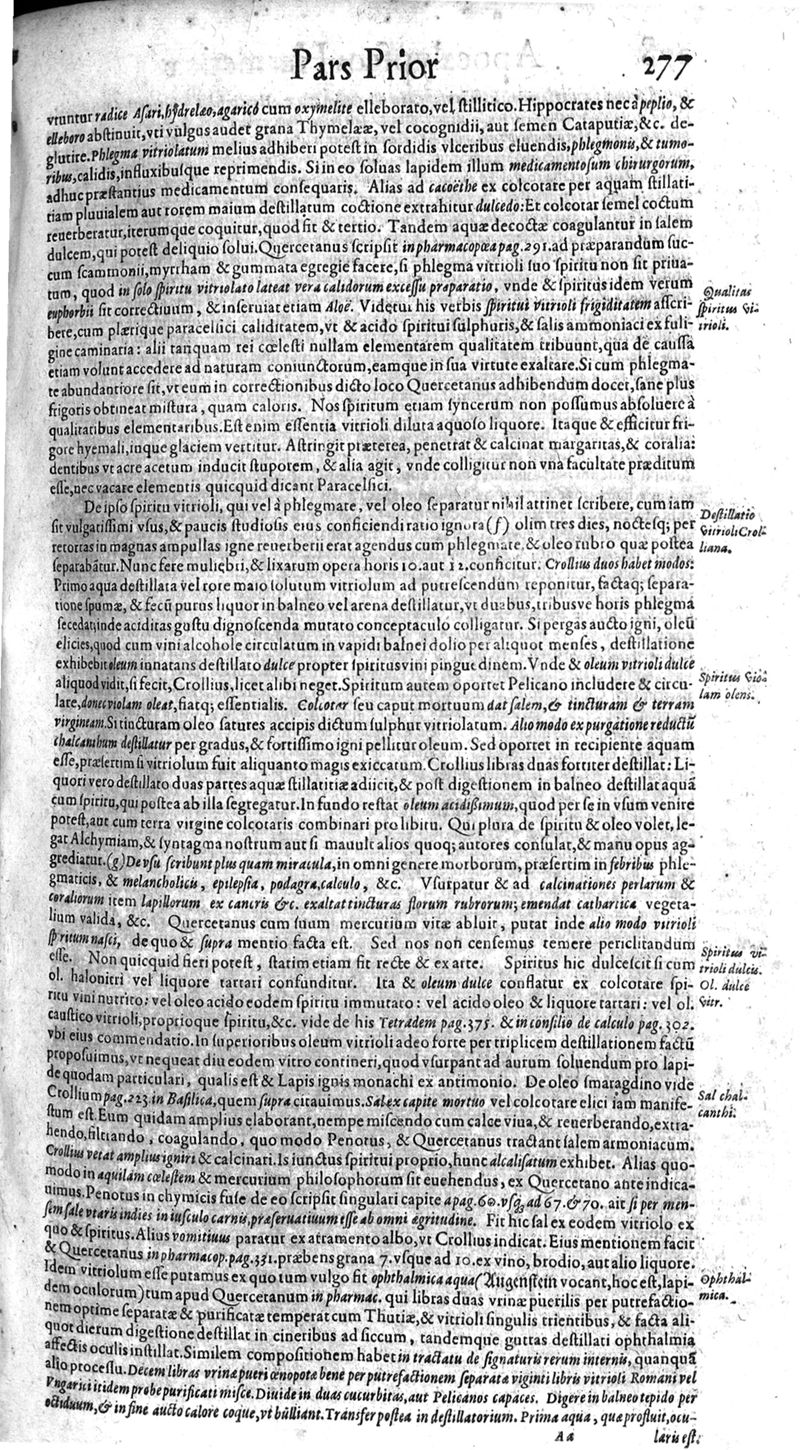 Pars Prior 277
vtuntur radice Asari, hydrelæo, agarico cum oxymelite elleborato, vel stillitico. Hippocrates nec à peplio, &
elleboro abstinuit, vti vulgus audet grana Thymelææ, vel cocognidii, aut semen Cataputiæ, &c. de-
glutire. Phlegma vitriolatum melius adhiberi potest in sordidis vlceribus eluendis, phlegmonis, & tumo-
ribus, calidis, influxibusque reprimendis. Si in eo soluas lapidem illum medicamentosum chirurgorum,
adhuc præstantius medicamentum consequaris. Alias ad cacoëthe ex colcotare per aquam stillati-
tiam pluuialem aut rorem maium destillatum coctione extrahitur dulcedo: Et colcotar semel coctum
reuerberatur, iterumque coquitur, quod fit & tertio. Tandem aquæ decoctæ coagulantur in salem
dulcem, qui potest deliquio solui. Quercetanus scripsit in pharmacopœa pag. 291. ad præparandum suc-
cum scammonii, myrrham & gummata egregie facere, si phlegma vitrioli suo spiritu non sit priua-
tum, quod in solo spiritu vitriolato lateat vera calidorum excessu præparatio, vnde & spiritus idem verum
euphorbii sit correctiuum, & inseruiat etiam Aloë. Videtur his verbis spiritui vitrioli frigiditatem ascri-
bere, cum plærique paracelsici caliditatem, vt & acido spiritui sulphuris, & salis ammoniaci ex fuli-
gine caminaria: alii tanquam rei cœlesti nullam elementarem qualitatem tribuunt, qua de caussa
etiam volunt accedere ad naturam coniunctorum, eamque in sua virtute exaltare. Si cum phlegma-
te abundantiore sit, vt eum in correctionibus dicto loco Quercetanus adhibendum docet, sane plus
frigoris obtineat mistura, quam caloris. Nos spiritum etiam syncerum non possumus absoluere à
qualitatibus elementaribus. Est enim essentia vitrioli diluta aquoso liquore. Itaque & efficitur fri-
gore hyemali, inque glaciem vertitur. Astringit præterea, penetrat & calcinat margaritas, & coralia:
dentibus vt acre acetum inducit stuporem, & alia agit, vnde colligitur non vna facultate præditum
esse, nec vacare elementis quicquid dicant Paracelsici.
Qualitas
spiritus vi-
trioli.
De ipso spiritu vitrioli, qui vel à phlegmate, vel oleo separatur nihil attinet scribere, cum iam
sit vulgatissimi vsus, & paucis studiosis eius conficiendi ratio ignota (f) olim tres dies, noctesq; per
retortas in magnas ampullas igne reuerberii erat agendus cum phlegmate, & oleo rubro quæ postea
separabātur. Nunc fere muliebri, & lixarum opera horis 10. aut 12. conficitur. Crollius duos habet modos:
Primo aqua destillata vel rore maio solutum vitriolum ad putrescendum reponitur, factaq; separa-
tione spumæ, & fecū purus liquor in balneo vel arena destillatur, vt duabus, tribusve horis phlegma
secedat, inde aciditas gustu dignoscenda mutato conceptaculo colligatur. Si pergas aucto igni, oleū
elicies, quod cum vini alcohole circulatum in vapidi balnei dolio per aliquot menses, destillatione
exhibebit oleum innatans destillato dulce propter spiritus vini pinguedinem. Vnde & oleum vitrioli dulce
aliquod vidit, si fecit, Crollius, licet alibi neget. Spiritum autem oportet Pelicano includere & circu-
lare, donec violam oleat, fiatq; essentialis. Colcotar seu caput mortuum dat salem, & tincturam & terram
virgineam. Si tincturam oleo satures accipis dictum sulphur vitriolatum. Alio modo ex purgatione reductū
chalcanthum destillatur per gradus, & fortissimo igni pellitur oleum. Sed oportet in recipiente aquam
esse, præsertim si vitriolum fuit aliquanto magis exiccatum. Crollius libras duas fortiter destillat: Li-
quori vero destillato duas partes aquæ stillatitiæ adiicit, & post digestionem in balneo destillat aquā
cum spiritu, qui postea ab illa segregatur. In fundo restat oleum acidissimum, quod per se in vsum venire
potest, aut cum terra virgine colcotaris combinari pro libitu. Qui plura de spiritu & oleo volet, le-
gat Alchymiam, & syntagma nostrum aut si mauult alios quoq; autores consulat, & manu opus ag-
grediatur. (g) De vsu scribunt plus quam miracula, in omni genere morborum, præsertim in febribus phle-
gmaticis, & melancholicis, epilepsia, podagra, calculo, &c. Vsurpatur & ad calcinationes perlarum &
coraliorum item lapillorum ex cancris &c. exaltat tincturas florum rubrorum; emendat cathartica vegeta-
lium valida, &c. Quercetanus cum suum mercurium vitæ abluit, putat inde alio modo vitrioli
spiritum nasci, de quo & supra mentio facta est. Sed nos non censemus temere periclitandum
esse. Non quicquid fieri potest, statim etiam fit recte & ex arte. Spiritus hic dulcescit si cum
ol. halonitri vel liquore tartari confunditur. Ita & oleum dulce conflatur ex colcotare spi-
ritu vini nutrito: vel oleo acido eodem spiritu immutato: vel acido oleo & liquore tartari: vel ol.
caustico vitrioli, proprioque spiritu, &c. vide de his Tetradem pag. 375. & in consilio de calculo pag. 302.
vbi eius commendatio. In superioribus oleum vitrioli adeo forte per triplicem destillationem factū
proposuimus, vt nequeat diu eodem vitro contineri, quod vsurpant ad aurum soluendum pro lapi-
de quodam particulari, qualis est & Lapis ignis monachi ex antimonio. De oleo smaragdino vide
Crollium pag. 223. in Basilica, quem supra citauimus. Sal ex capite mortuo vel colcotare elici iam manife-
stum est. Eum quidam amplius elaborant, nempe miscendo cum calce viua, & reuerberando, extra-
hendo, filtrando, coagulando, quo modo Penotus, & Quercetanus tractant salem armoniacum.
Crollius vetat amplius igniri & calcinari. Is iunctus spiritui proprio, hunc alcalisatum exhibet. Alias quo-
modo in aquilam cœlestem & mercurium philosophorum sit euehendus, ex Quercetano ante indica-
uimus. Penotus in chymicis fuse de eo scripsit singulari capite a pag. 60. vsq; ad 67. & 70. ait si per men-
sem sale vtaris indies in iusculo carnis, præseruatiuum esse ab omni ægritudine. Fit hic sal ex eodem vitriolo ex
quo & spiritus. Alius vomitiuus paratur ex atramento albo, vt Crollius indicat. Eius mentionem facit
& Quercetanus in pharmacop. pag. 331. præbens grana 7. vsque ad 10. ex vino, brodio, aut alio liquore.
Idem vitriolum esse putamus ex quo tum vulgo fit ophthalmica aqua (Augenstein vocant, hoc est, lapi-
dem oculorum) tum apud Quercetanum in pharmac. qui libras duas vrinæ puerilis per putrefactio-
nem optime separatæ & purificatæ temperat cum Thutiæ, & vitrioli singulis trientibus, & facta ali-
quot dierum digestione destillat in cineribus ad siccum, tandemque guttas destillati ophthalmia
affectis oculis instillat. Similem compositionem habet in tractatu de signaturis rerum internis, quanquā
alio processu. Decem libras vrinæ pueri œnopotæ bene per putrefactionem separatæ viginti libris vitrioli Romani vel
Vngarici itidem probe purificati misce. Diuide in duas cucurbitas, aut Pelicanos capaces. Digere in balneo tepido per
octiduum, & in fine aucto calore coque, vt bulliant. Transfer postea in destillatorium. Prima aqua, quæ profluit, ocu-
Destillatio
vitrioli Crol-
liana.
Spiritus vio-
lam olens.
Spiritus vi-
trioli dulcis.
Ol. dulce
vitr.
Sal chal-
canthi.
Ophthal-
mica.
Aa laris est.